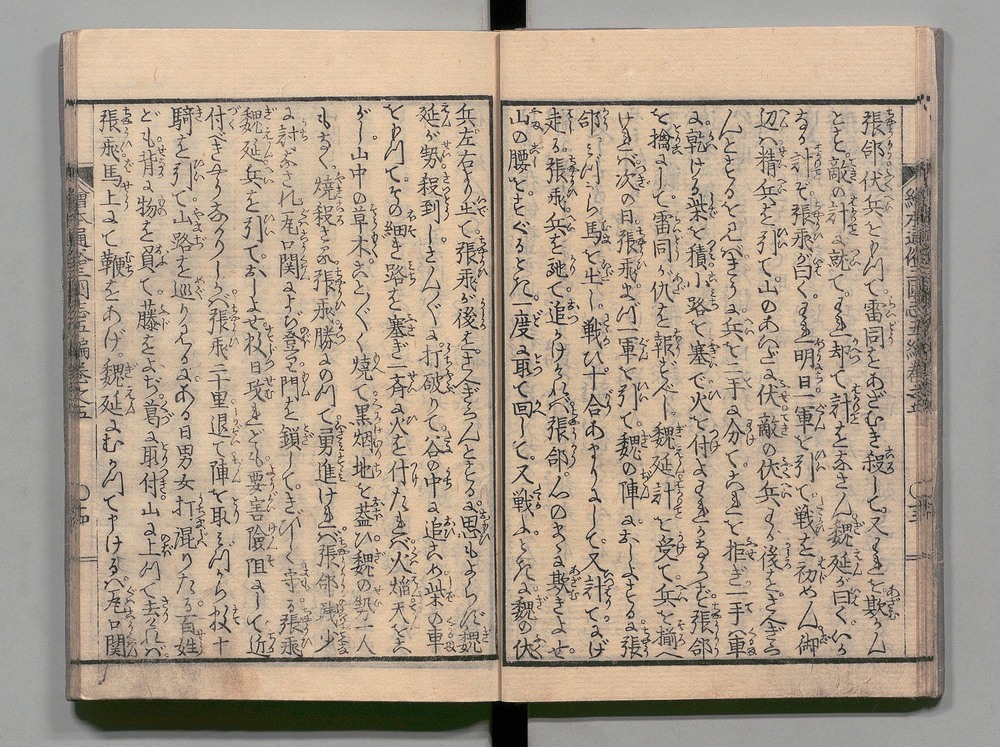 張郃伏兵をもつて雷同をあざむき殺して又それを欺かん
とも敵の計に就てそれ却て計をなさん魏延が曰くいか
なる計ぞ張飛が曰くそれ明日一軍を引て戦を初めん御
辺は精兵を引て山のあいだに伏敵の伏兵する後をさへぎら
んとするを見ばさらに兵を二手に分てこれを拒ぎ一手は車
に乾ける柴を積小路を塞で火を付よそれかならず張郃
を擒にして雷同が仇を報ずべし魏延計を受て兵を揃へ
ければ次の日張飛まづ一軍を引て魏の陣におしよせる張
郃みづから馬を出し戦ひ十合あまりにして又計てにげ
走る張飛兵を馳て追かけければ張郃人のまゝ欺きよせ
山の腰をすぐるとき一度に取て回して又戦ふとき魏の伏
兵左右より出て張飛が後をさへぎらんとするに思もよらず魏
延が勢殺到しさんざんに打破りて谷の中に追こめ柴の車
をもつてその細き路を塞ぎ一斉に火を付たれば火焔天をこ
がし山中の草木ことごとく焼て黒烟地を蓋ひ魏の勢一人
もなく焼殺さる張飛勝にのつて勇進ければ張郃残少
に討なされ瓦口関によぢ登て門を鎖してきびしく守る張飛
魏延兵を引ておしよせ数日攻れども要害険阻にして近
付べきやうなかりしかば張飛二十里退て陣を取みづから数十
騎を引て山路を巡りみるにある日男女打混りたる百姓
ども背に物を負て藤をよぢ葛に取付山に上つて去ければ
張飛馬上にて鞭をあげ魏延にむかつて申けるは瓦口関
繪本通俗三國志五編巻之五